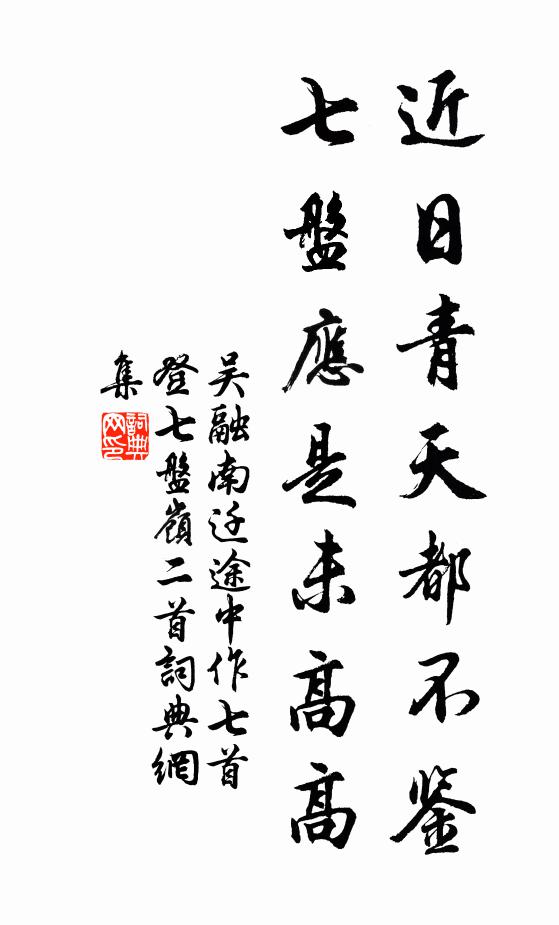 近日青天都不鉴
七盤應是未高高
吴融南迁途中作七首
登七盤嶺二首詞典網
集
詞典
网印